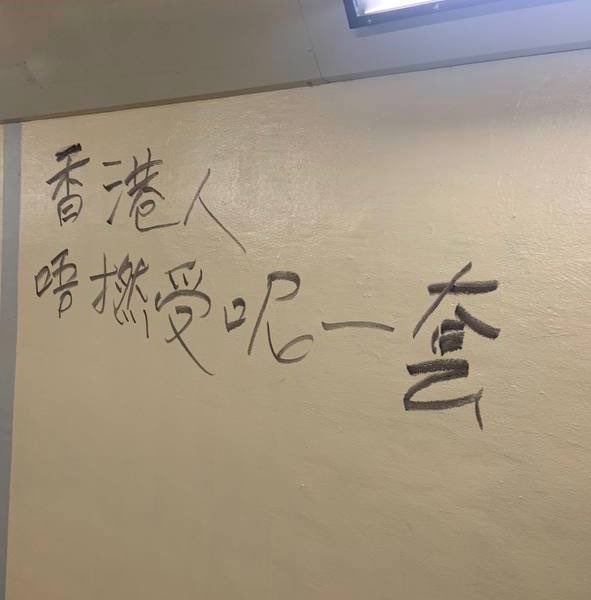 香港人
唔撚受呢一套